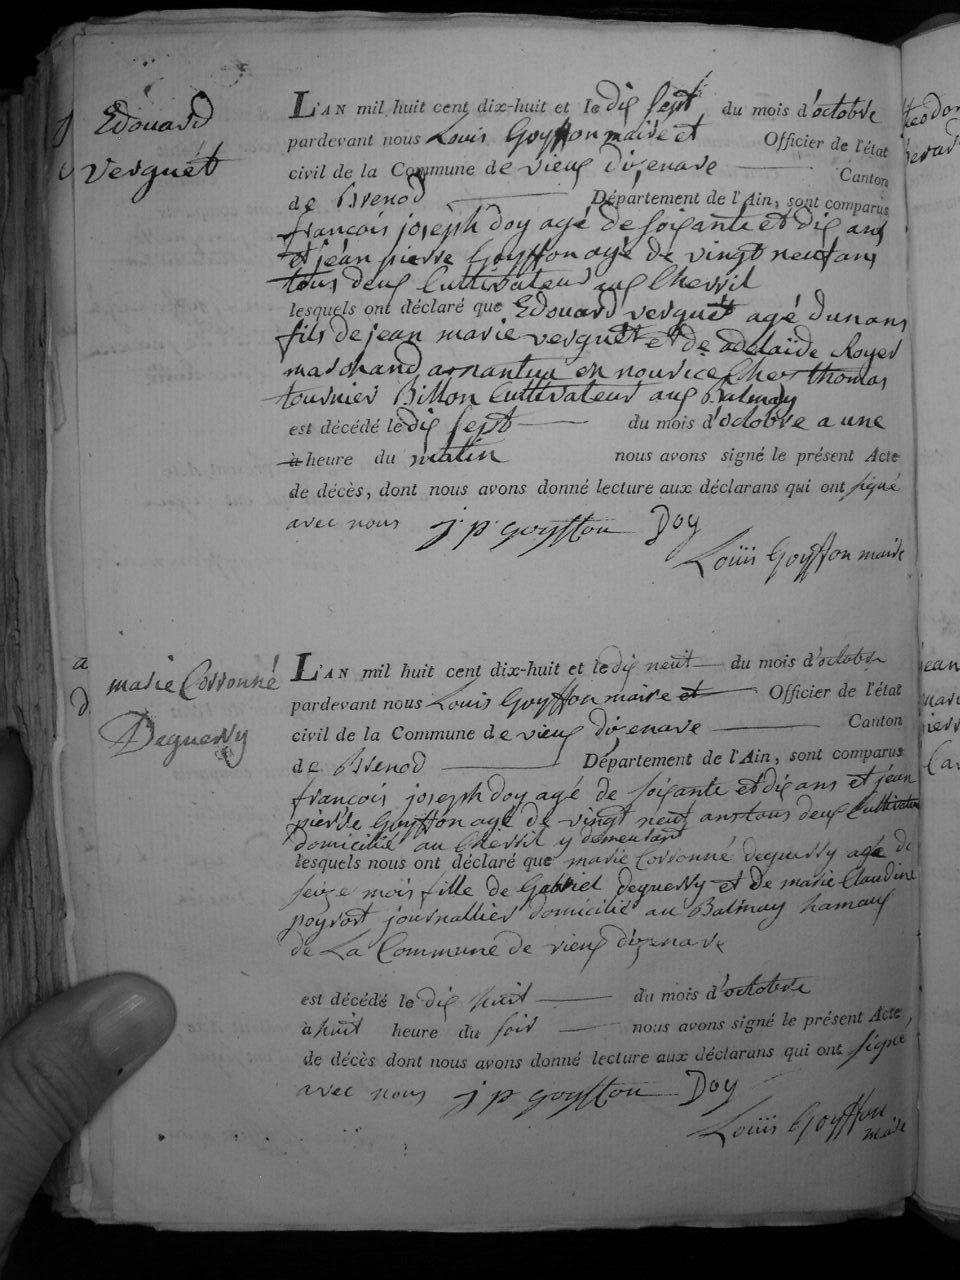 Edouard
verguét
L'AN mil huit cent dix-huit et le dix sept du mois d'octobre
pardevant nous Louis Goyffon maire et Officier de l'état
civil de la Commune de vieux dizenave Canton
de Brenod Département de l'Ain, sont comparus
françois joseph Doy agé de soixante et dix ans
et jéan pierre Goyffon agé de vingt neuf ans
tous deux Cultivateur aux Chevril
lesquels ont déclaré que Edouard verguét agé dunans
fils de jean marie verguét et de adelaïde Royer
marchand a nantua en nourice Cher thomas
tournier Billon Cultivateur aux Balmay
est décédé le dix sept du mois d'octobre a une
à heure du matin nous avons signé le présent Acte
de décès, dont nous avons donné lecture aux déclarans qui ont signé
avec nous j p goyffon Doy
Louis Goyffon maire
a
d
marie Corronné
Deguerry
L'AN mil huit cent dix-huit et le dix neuf du mois d'octobre
pardevant nous Louis Goyffon maire et Officier de l'état
civil de la Commune de vieux dizenave Canton
de Brenod Département de l'Ain, sont comparus
françois joseph doy agé de soixante et dix ans et jéan
pierre Goyffon agé de vingt neuf ans tous deux Cultivateur
domicilié au Chevril y demeurant
lesquels nous ont déclaré que marie Corronné deguerry agée de
seize mois fille de Gabriel deguerry et de marie Claudine
poyrost journallier domicilié au Balmay hamaux
de La Commune de vieux dizenave
est décédé le dix huit du mois d'octobre
à huit heure du soir nous avons signé le présent Acte
de décès dont nous avons donné lecture aux déclarans qui ont signé
avec nous j p goyffon Doy
Louis Goyffon
maire